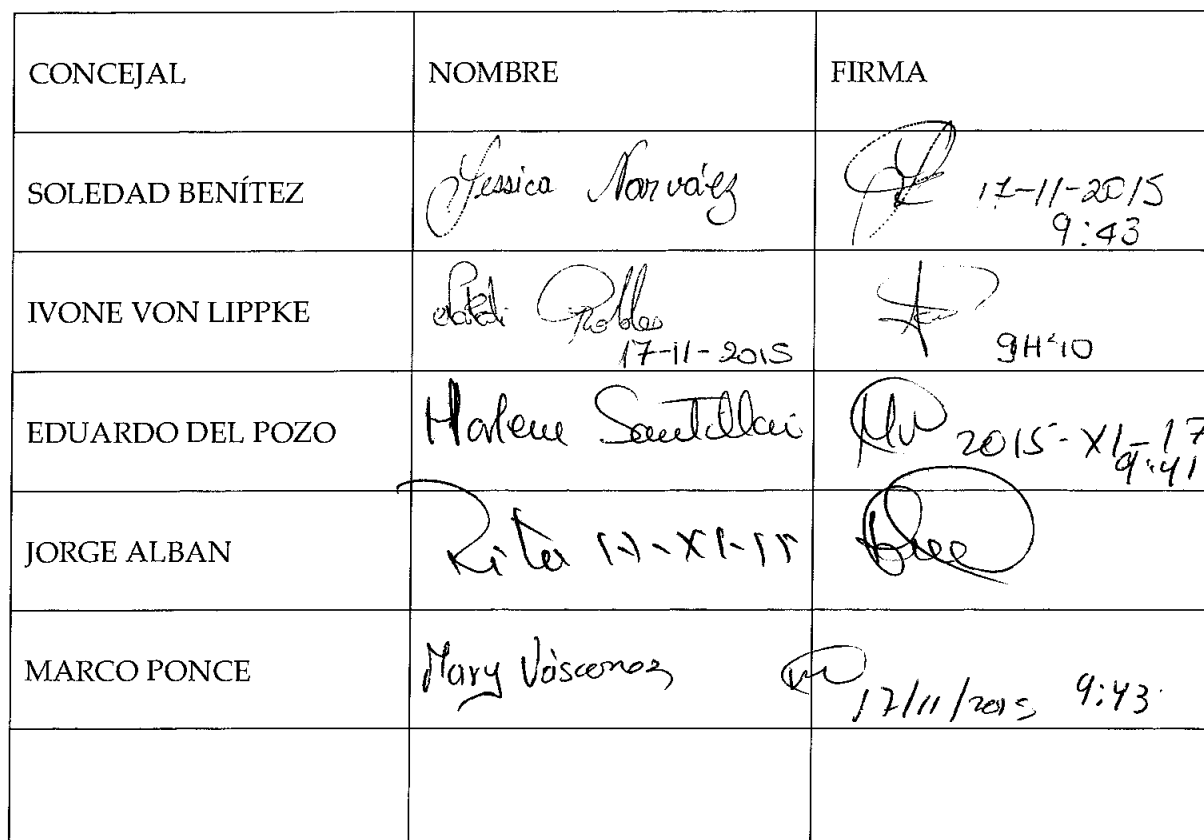 CONCEJAL NOMBRE FIRMA
SOLEDAD BENÍTEZ Jessica Narváez 17-11-2015
9:43
IVONE VON LIPPKE Robles
17-11-2015 9H40
EDUARDO DEL POZO Marlene Santillán 2015-XI-17
9:41
JORGE ALBAN Rita 17-XI-15
MARCO PONCE Mary Vásconez 17/11/2015 9:43